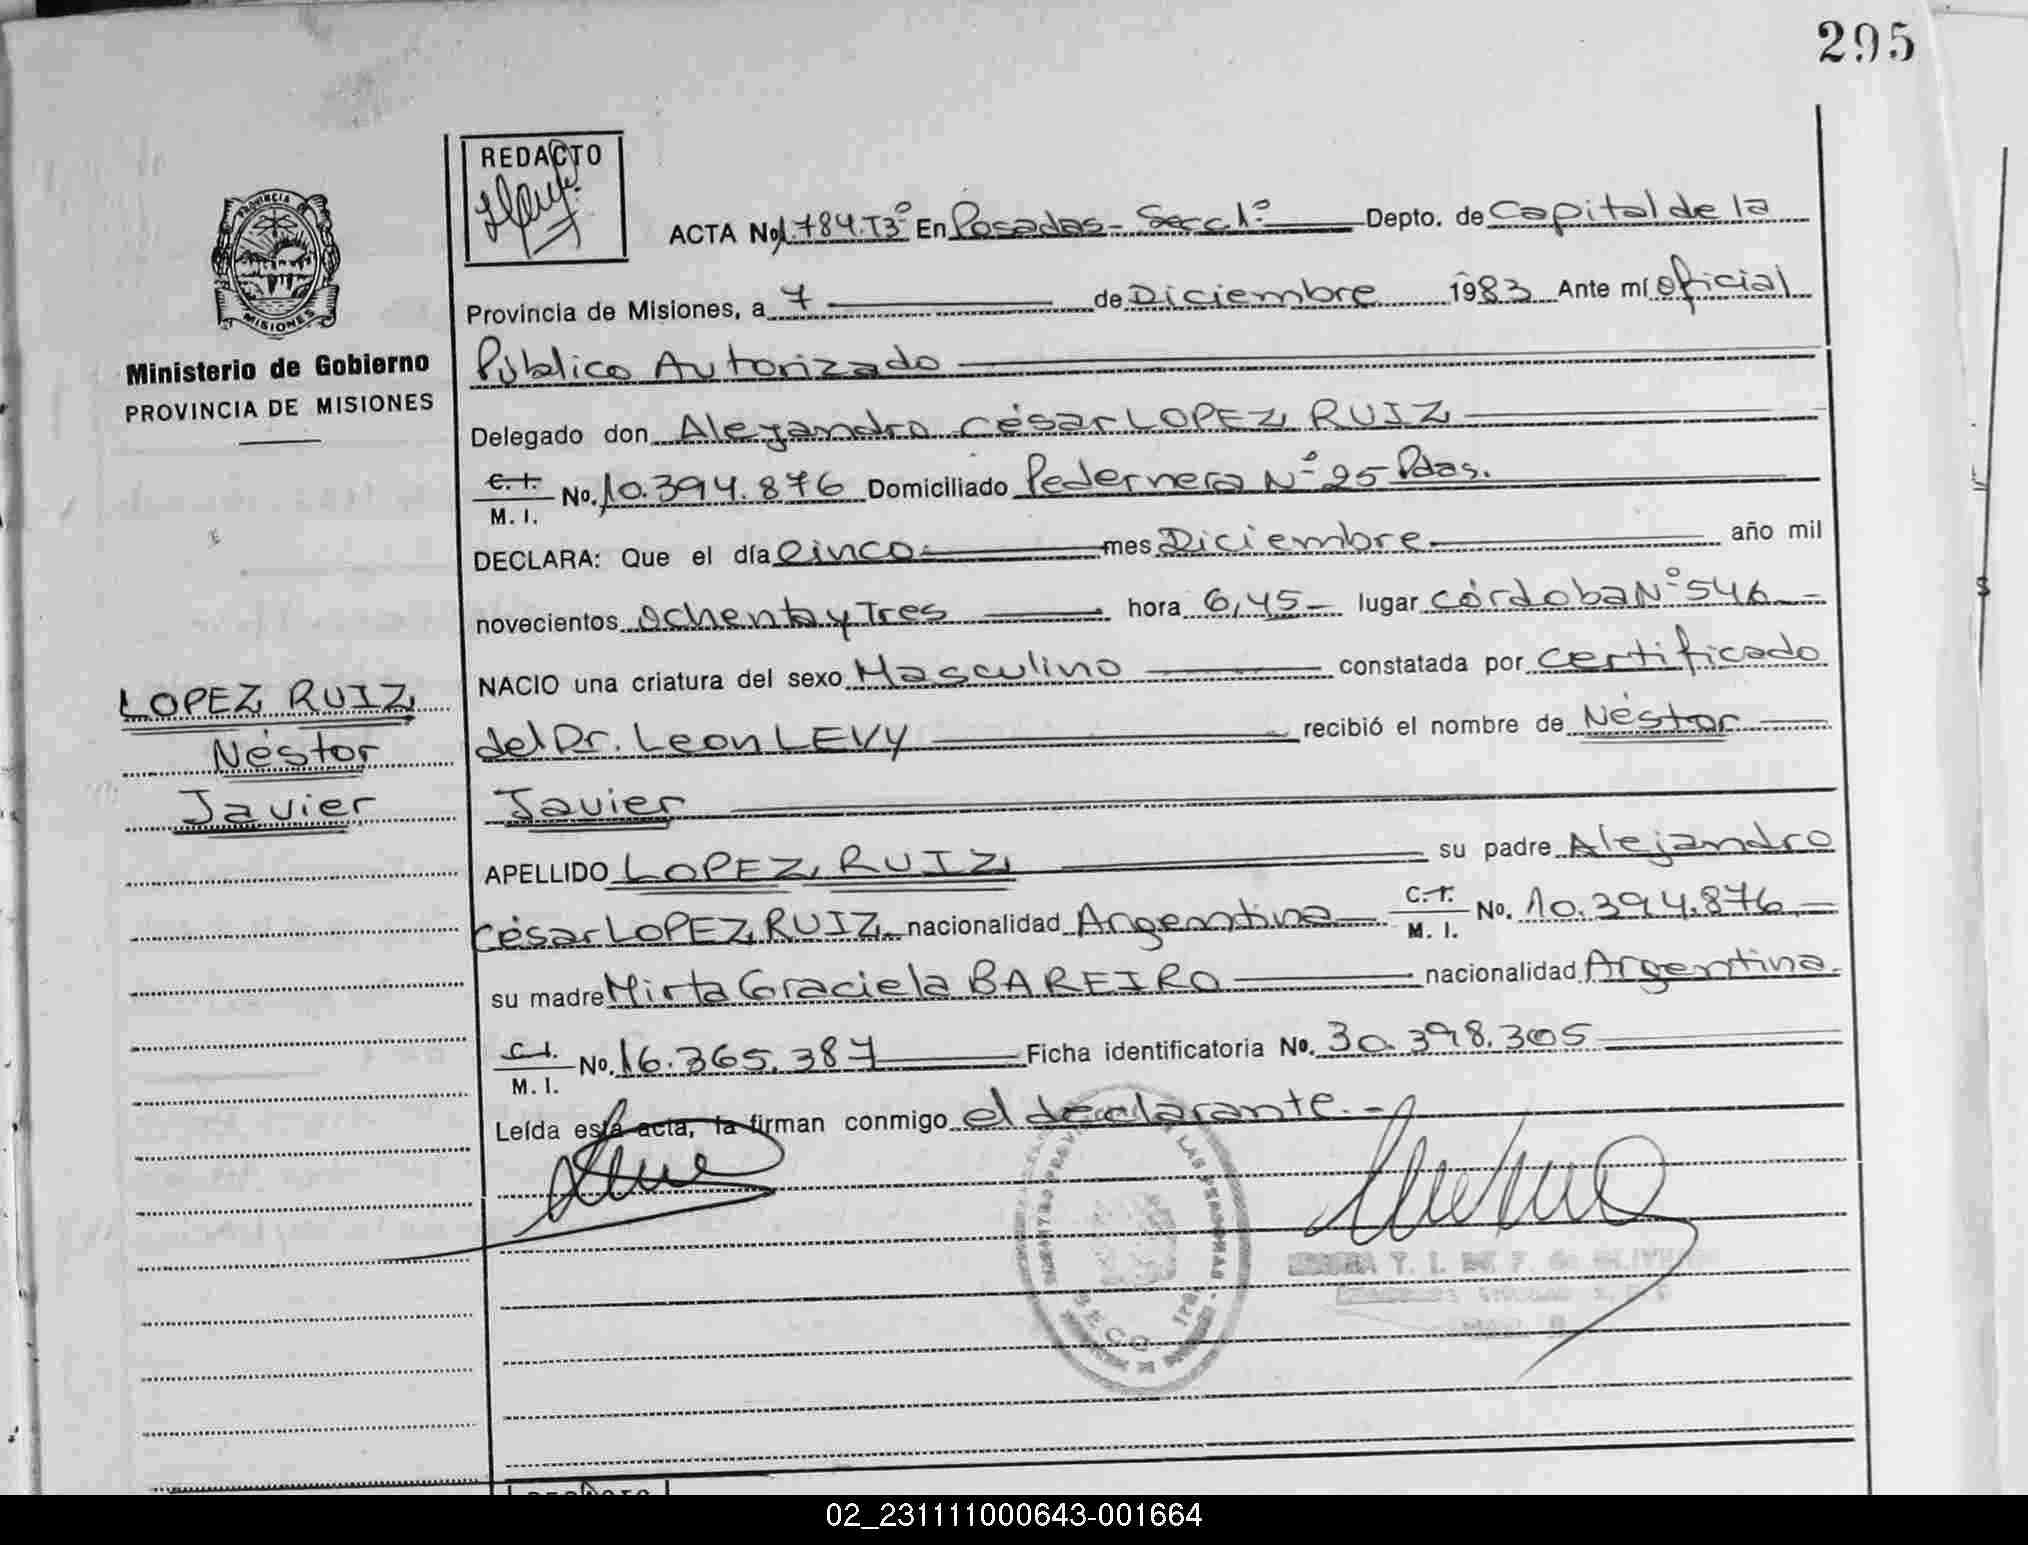 295
REDACTO
PROVINCIA DE
MISIONES
Ministerio de Gobierno
PROVINCIA DE MISIONES
ACTA No 1.784.T3º En Posadas - Secc 1º Depto. de Capital de la
Provincia de Misiones, a 7 de Diciembre 1983 Ante mí oficial
Público Autorizado
Delegado don Alejandro César LOPEZ RUIZ
C. I. M. I. No. 10.394.876 Domiciliado Pedernera Nº 25 Pdas.
DECLARA: Que el día Cinco mes Diciembre año mil
novecientos Ochenta y Tres hora 6,45 lugar Córdoba Nº 546
NACIO una criatura del sexo Masculino constatada por certificado
del Dr. Leon LEVY recibió el nombre de Néstor
Javier
APELLIDO LOPEZ RUIZ su padre Alejandro
César LOPEZ RUIZ nacionalidad Argentina C. I. M. I. No. 10.394.876
su madre Mirta Graciela BAREIRO nacionalidad Argentina
C. I. M. I. No. 16.365.387 Ficha identificatoria No. 30.398.305
Leída esta acta, la firman conmigo el declarante.-
LOPEZ RUIZ
Néstor
Javier
LAS PERSONAS
02_231111000643-001664